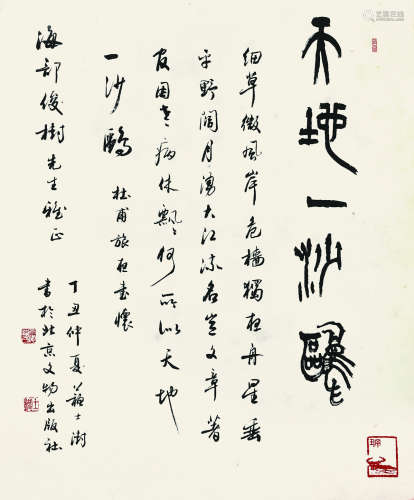 天地一沙鷗
細草微風岸危檣獨夜舟星垂
平野闊月湧大江流名豈文章著
官因老病休飄飄何所似天地
一沙鷗 杜甫旅夜書懷
海部俊樹先生雅正
丁丑仲夏蘇士澍
書於北京文物出版社